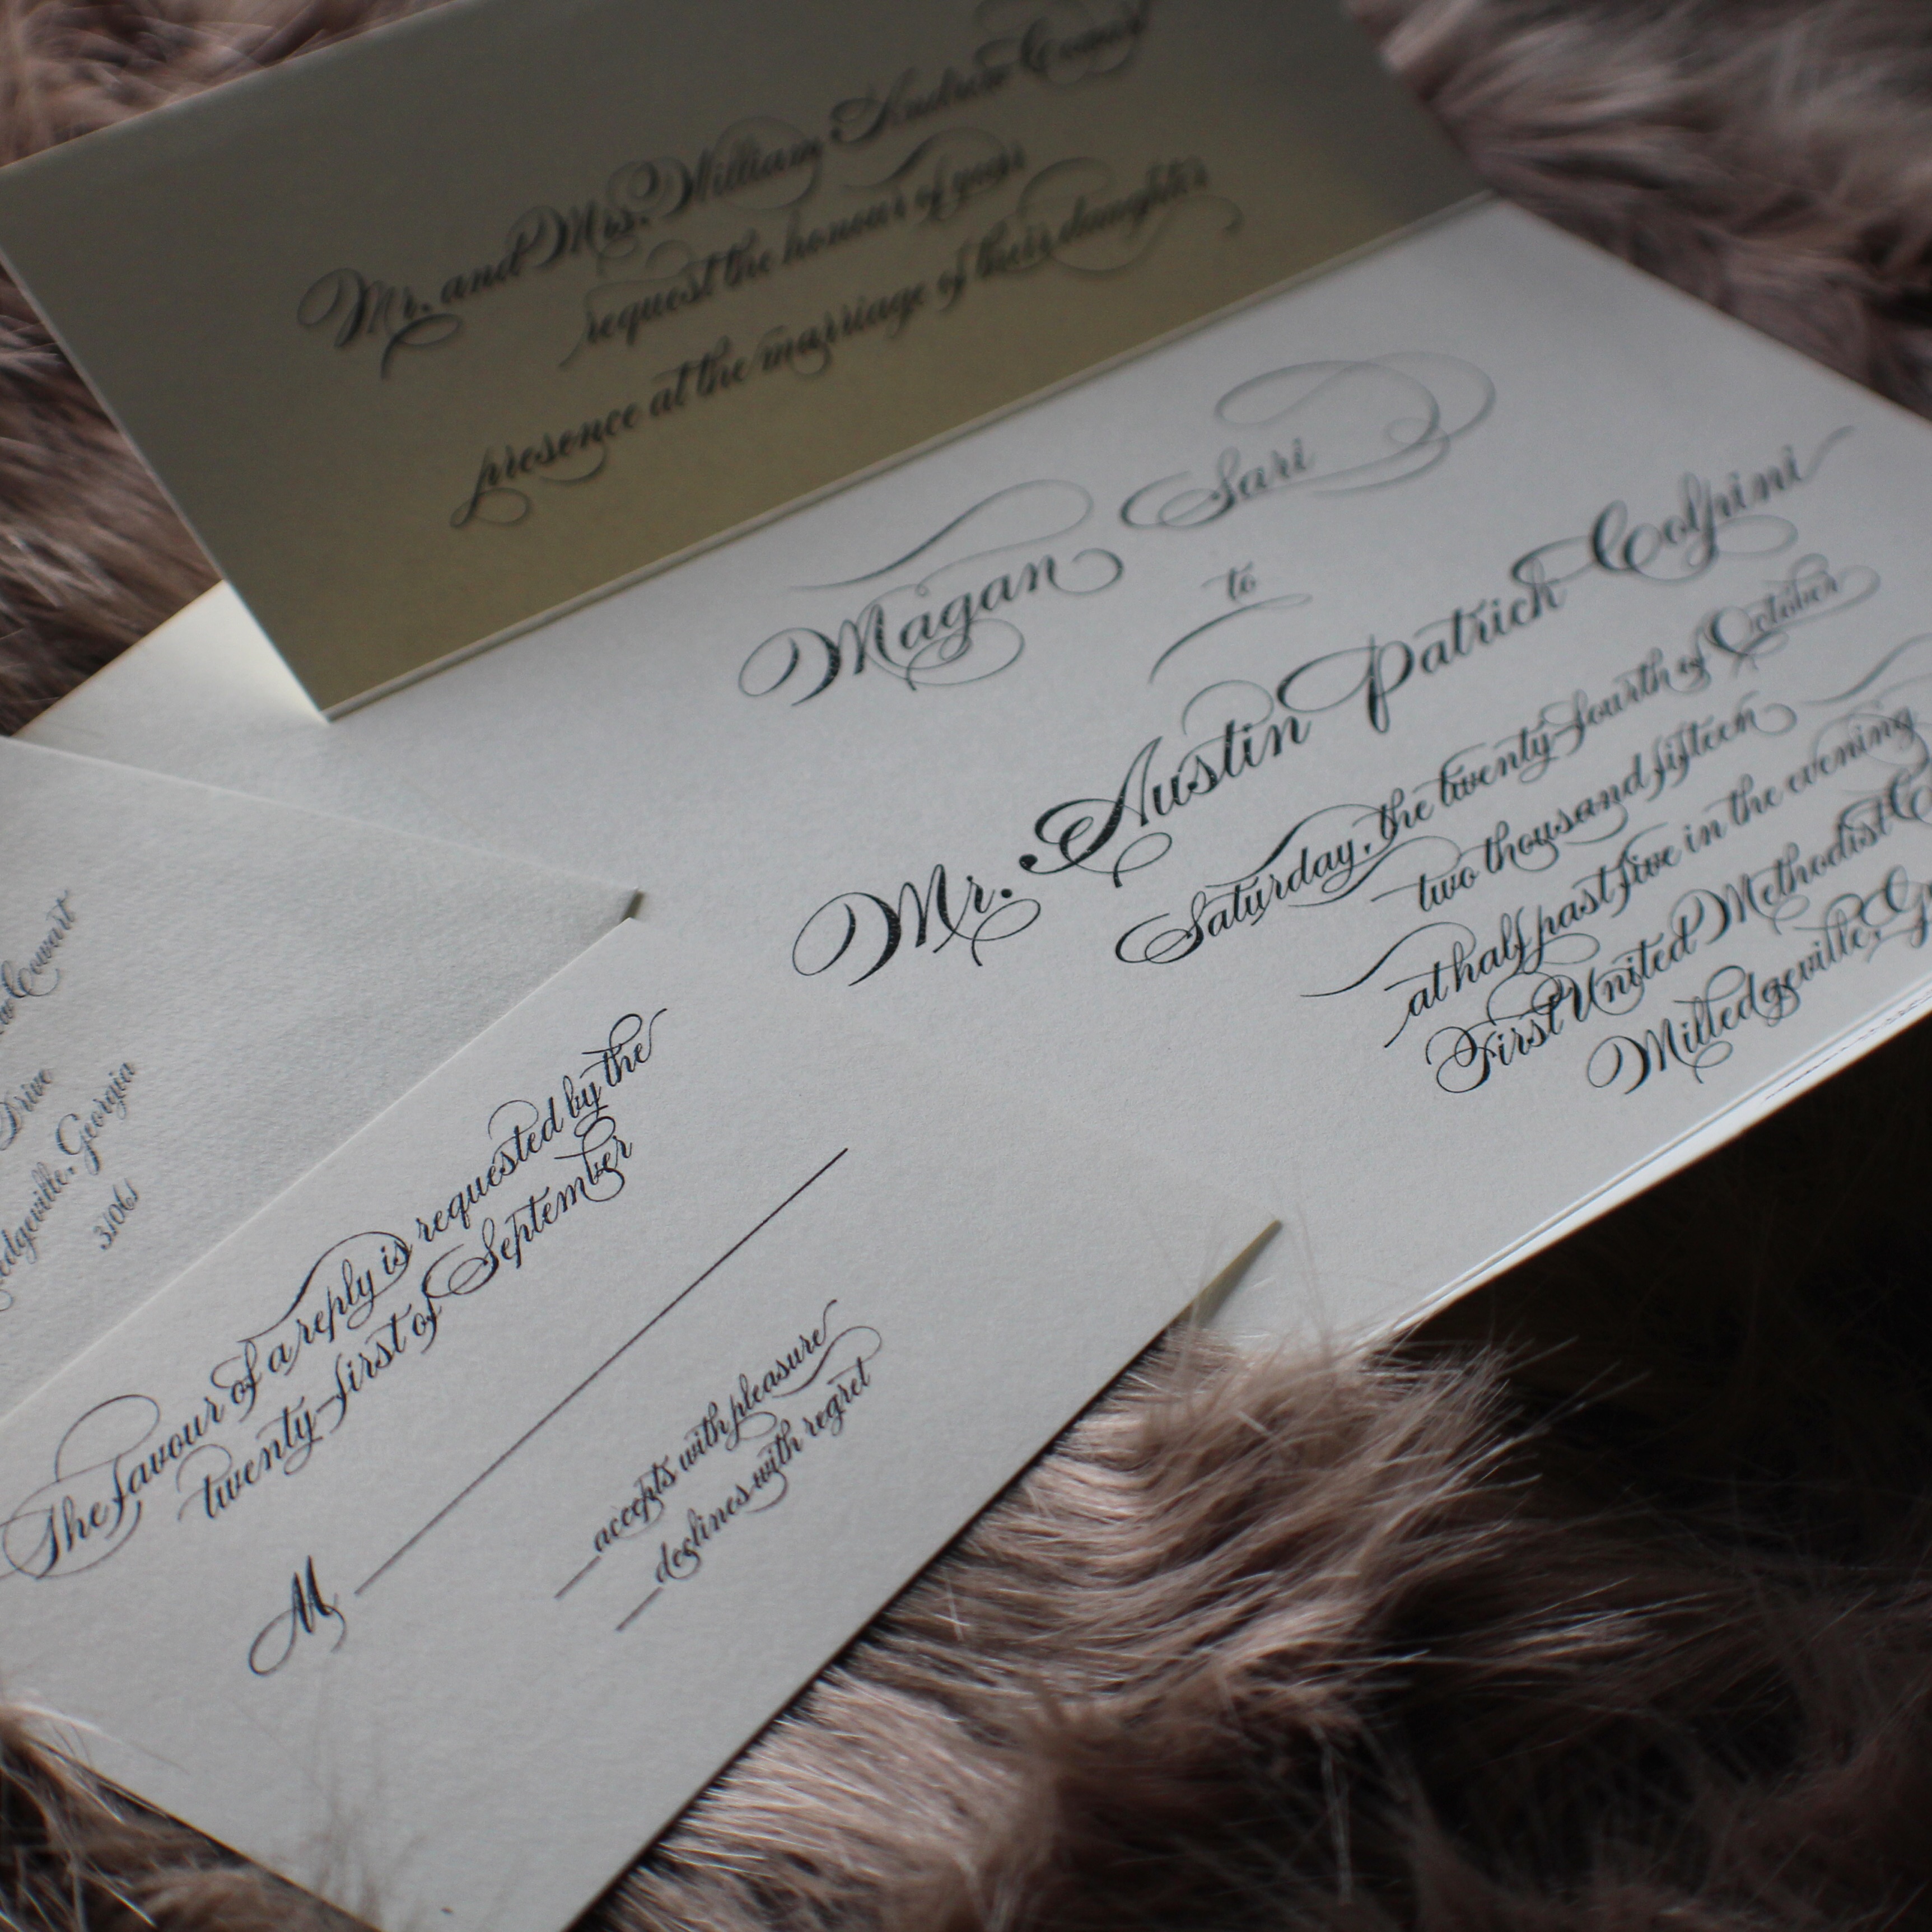 Mr. and Mrs. William Andrew Cowart
request the honour of your
presence at the marriage of their daughter
Magan Sari
to
Mr. Austin Patrick Colpini
Saturday, the twenty-fourth of October
two thousand fifteen
at half past five in the evening
First United Methodist
Milledgeville,
Cowart
Drive
Georgia
31061
The favour of a reply is requested by the
twenty-first of September
M
accepts with pleasure
declines with regret